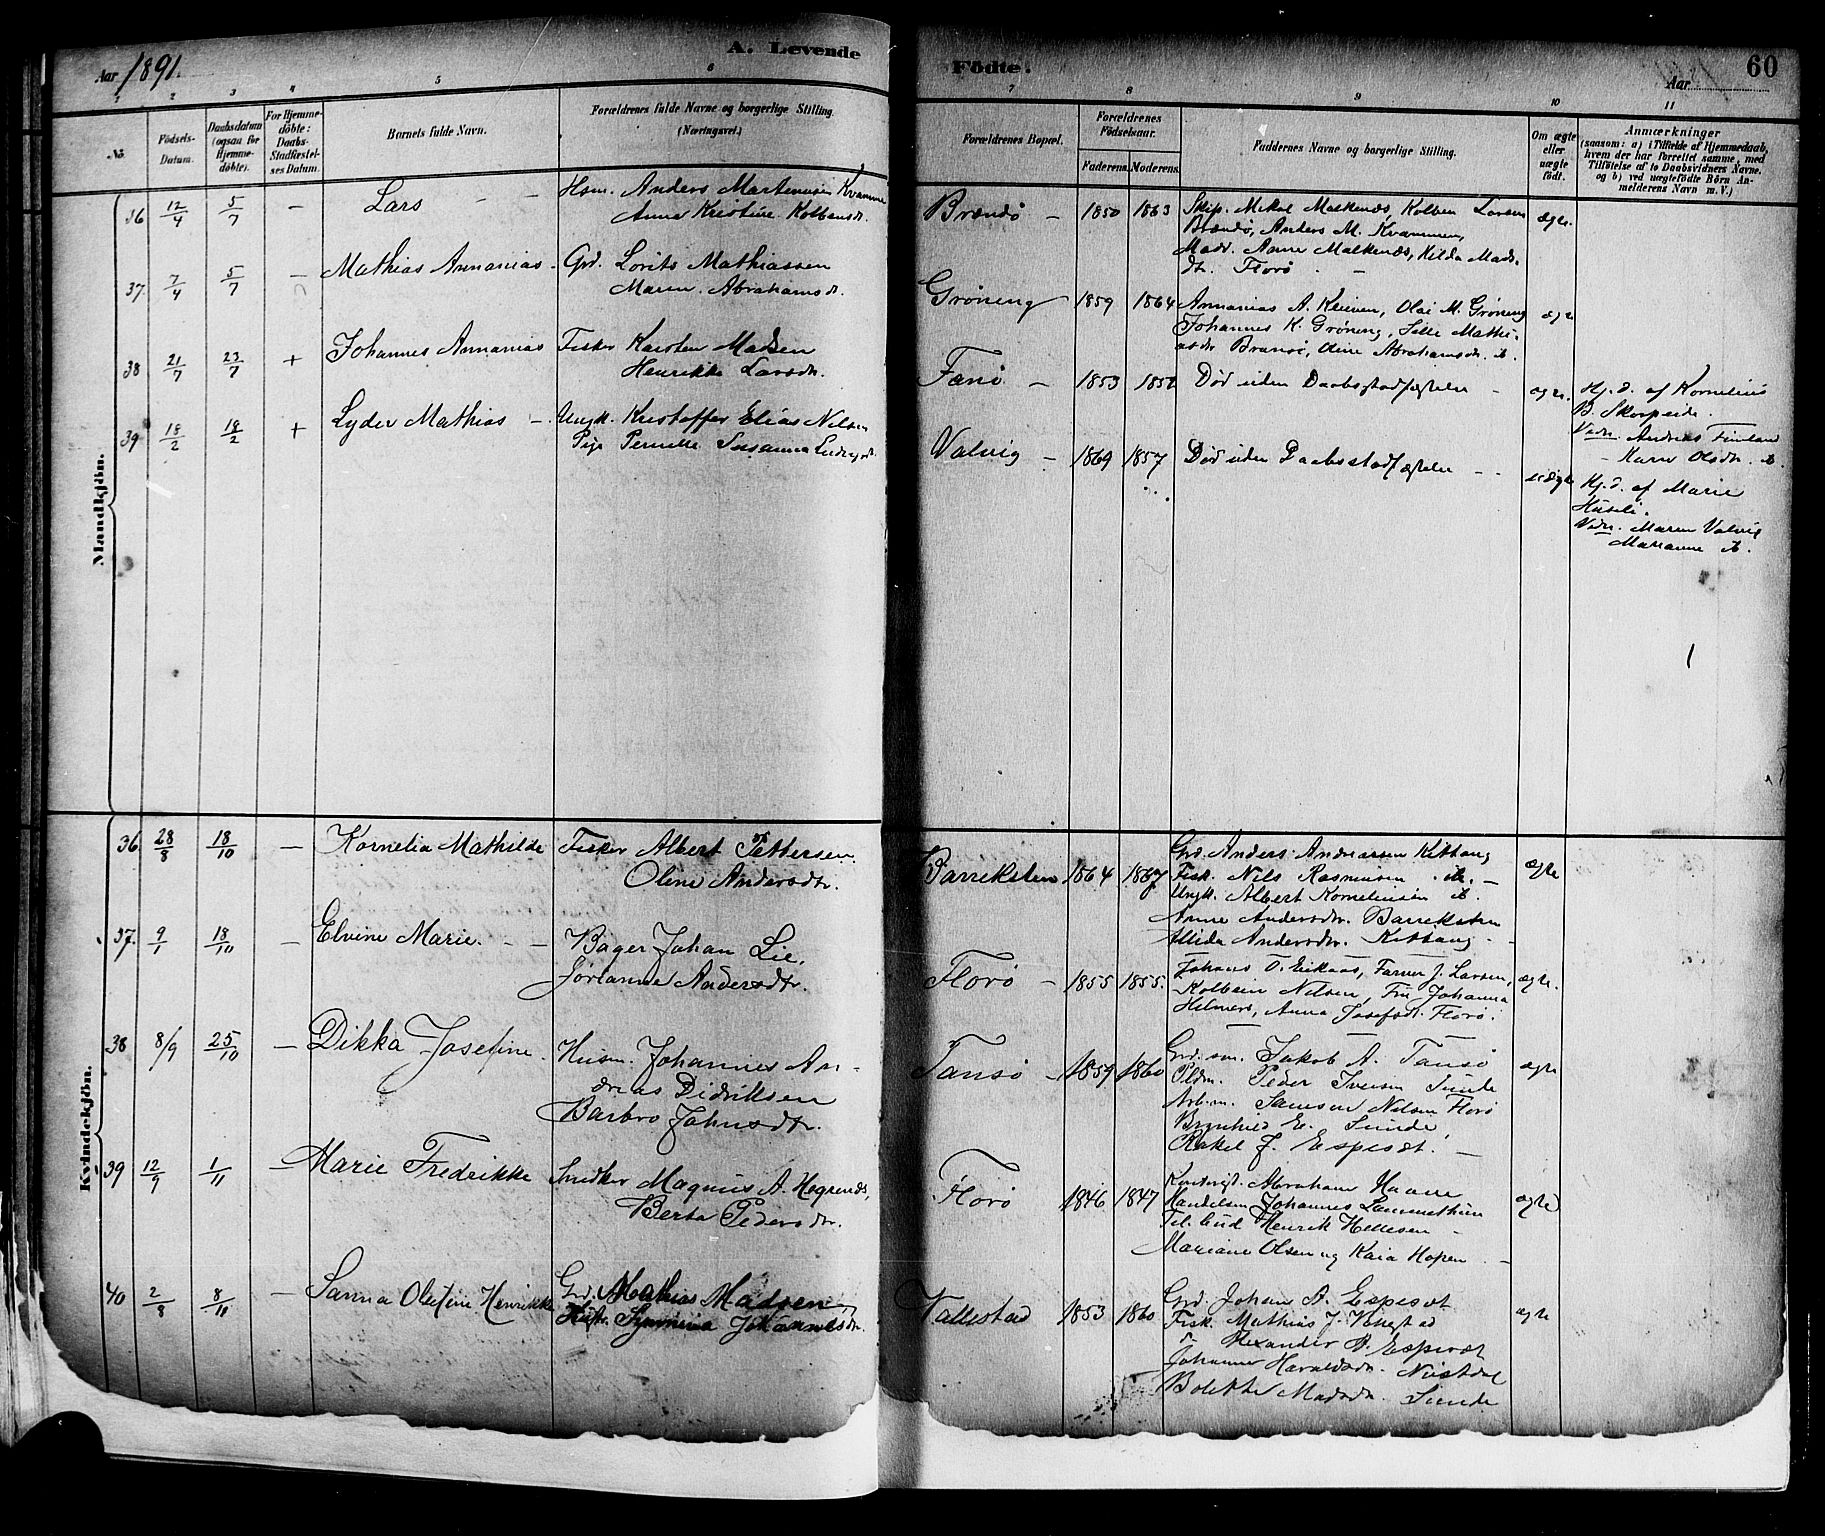 Aar 1891.
A. Levende
Födte.
60
Aar
1 2 3 4 5 6 7 8 9 10 11
No.
Födsels-Datum.
Daabsdatum (ogsaa for Hjemme-döbte).
For Hjemme-döbte: Daabs-Stadfæstel-ses Datum.
Barnets fulde Navn.
Forældrenes fulde Navne og borgerlige Stilling. (Næringsvei.)
Forældrenes Bopæl.
Forældrenes Födselsaar.
Faderens. Moderens.
Faddernes Navne og borgerlige Stilling.
Om ægte eller uægte födt.
Anmærkninger
(saasom: a) i Tilfælde af Hjemmedaab, hvem der har forrettet samme, med Tilföielse af to Daabsvidners Navne. og b) ved uægtefödte Börn An-melderens Navn m. V.)
Mandkjön.
36 12/4 5/7 — Lars — — Hsm. Anders Martenusen Kvamme
Anna Kristine Kolbensdr.
Brændø — 1850 1863 Skip. Mikal Malkenæs, Kolben Larsen
Brændø, Anders M. Kvammen,
Madr. Anne Malkenæs, Kilda Mads-
dr. Florø. — ægte.
37. 7/4 5/7 — Mathias Annanias. Grd. Lorits Mathiassen
Maren Abrahamsdr.
Grøning 1859 1864 Annanias A. Kleiven, Olai M. Grøning
Johannes K. Grøning, Sille Mathi-
asdr Bransø, Oline Abrahamsdr. ib. ægte
38 21/7 23/7 + Johannes Annanias Fisker Karsten Madsen
Henrikke Larsdr.
Fanø — 1853 1852 Død uden Daabsstadfæstelse — ægte. Hj. d. af Kornelius
B. Skorpeide.
Vidn. Andreas Finland
— Karn Olsdr. ib.
39 18/2 18/2 + Lyder Mathias — Ungk. Kristoffer Elias Nilsen
Pige Pernille Susanna Ludvigsdr.
Valvig — 1869 1857 Død uden Daabsstadfæstelse — uægte Hj. d. af Marie
Huseli.
Vidn. Maren Valvig
Marianne ib.
Kvindekjön.
36 28/8 18/10 — Kornelia Mathilde Fisker Albert Pettersen
Oline Andersdtr.
Barreksten 1864 1867 Grd. Anders Andreassen Kittang
Fisk. Nils Rasmussen ib. —
Ungk. Albert Korneliussen ib.
Anne Andersdtr. Barreksten
Allida Andersdtr. Kittang — ægte
37. 9/1 18/10 — Elvine Marie. — — Bager Johan Lie,
Jørianne Andersdtr.
Florø — 1855 1855. Johans O. Eikaas, Farver J. Larsen,
Kolbein Nilsen, Fru Johanna
Hilmers, Anna Josefsdr. Florø. ægte.
38 8/9 25/10 — Dikka Josefine. Husm. Johannes An-
dreas Didriksen
Barbro Johnsdtr.
Tansø — 1859 1860 Grd. sm. Jakob A. Tansø
Pldm. Peder Iversen Sunde
Arb.m. Samson Nilsen Florø
Brynhild E. Sunde,
Rakel J. Espeset. — ægte
39 12/9 1/11 — Marie Fredrikke Snedker Magnus A. Hegrenes,
Berta Pedersdtr.
Florø 1846 1847 Abraham Haave
Handelsm Johannes Lammetun
Tel. bud Henrik Hellesen —
Mariane Olsen og Kaia Hopen — ægte
40 2/8 8/11 — Sanna Oletine Henrikke Grd. Mathias Madsen
Kstr. Symnina Johannesdr.
Vallestad 1853 1860 Grd. Johan A. Espeset
Fisk. Mathias J. Valestad
" Alexander A. Espeset
Johanne Haraldsdr. Nistdal
Bolette Madsdr. Sunde ægte